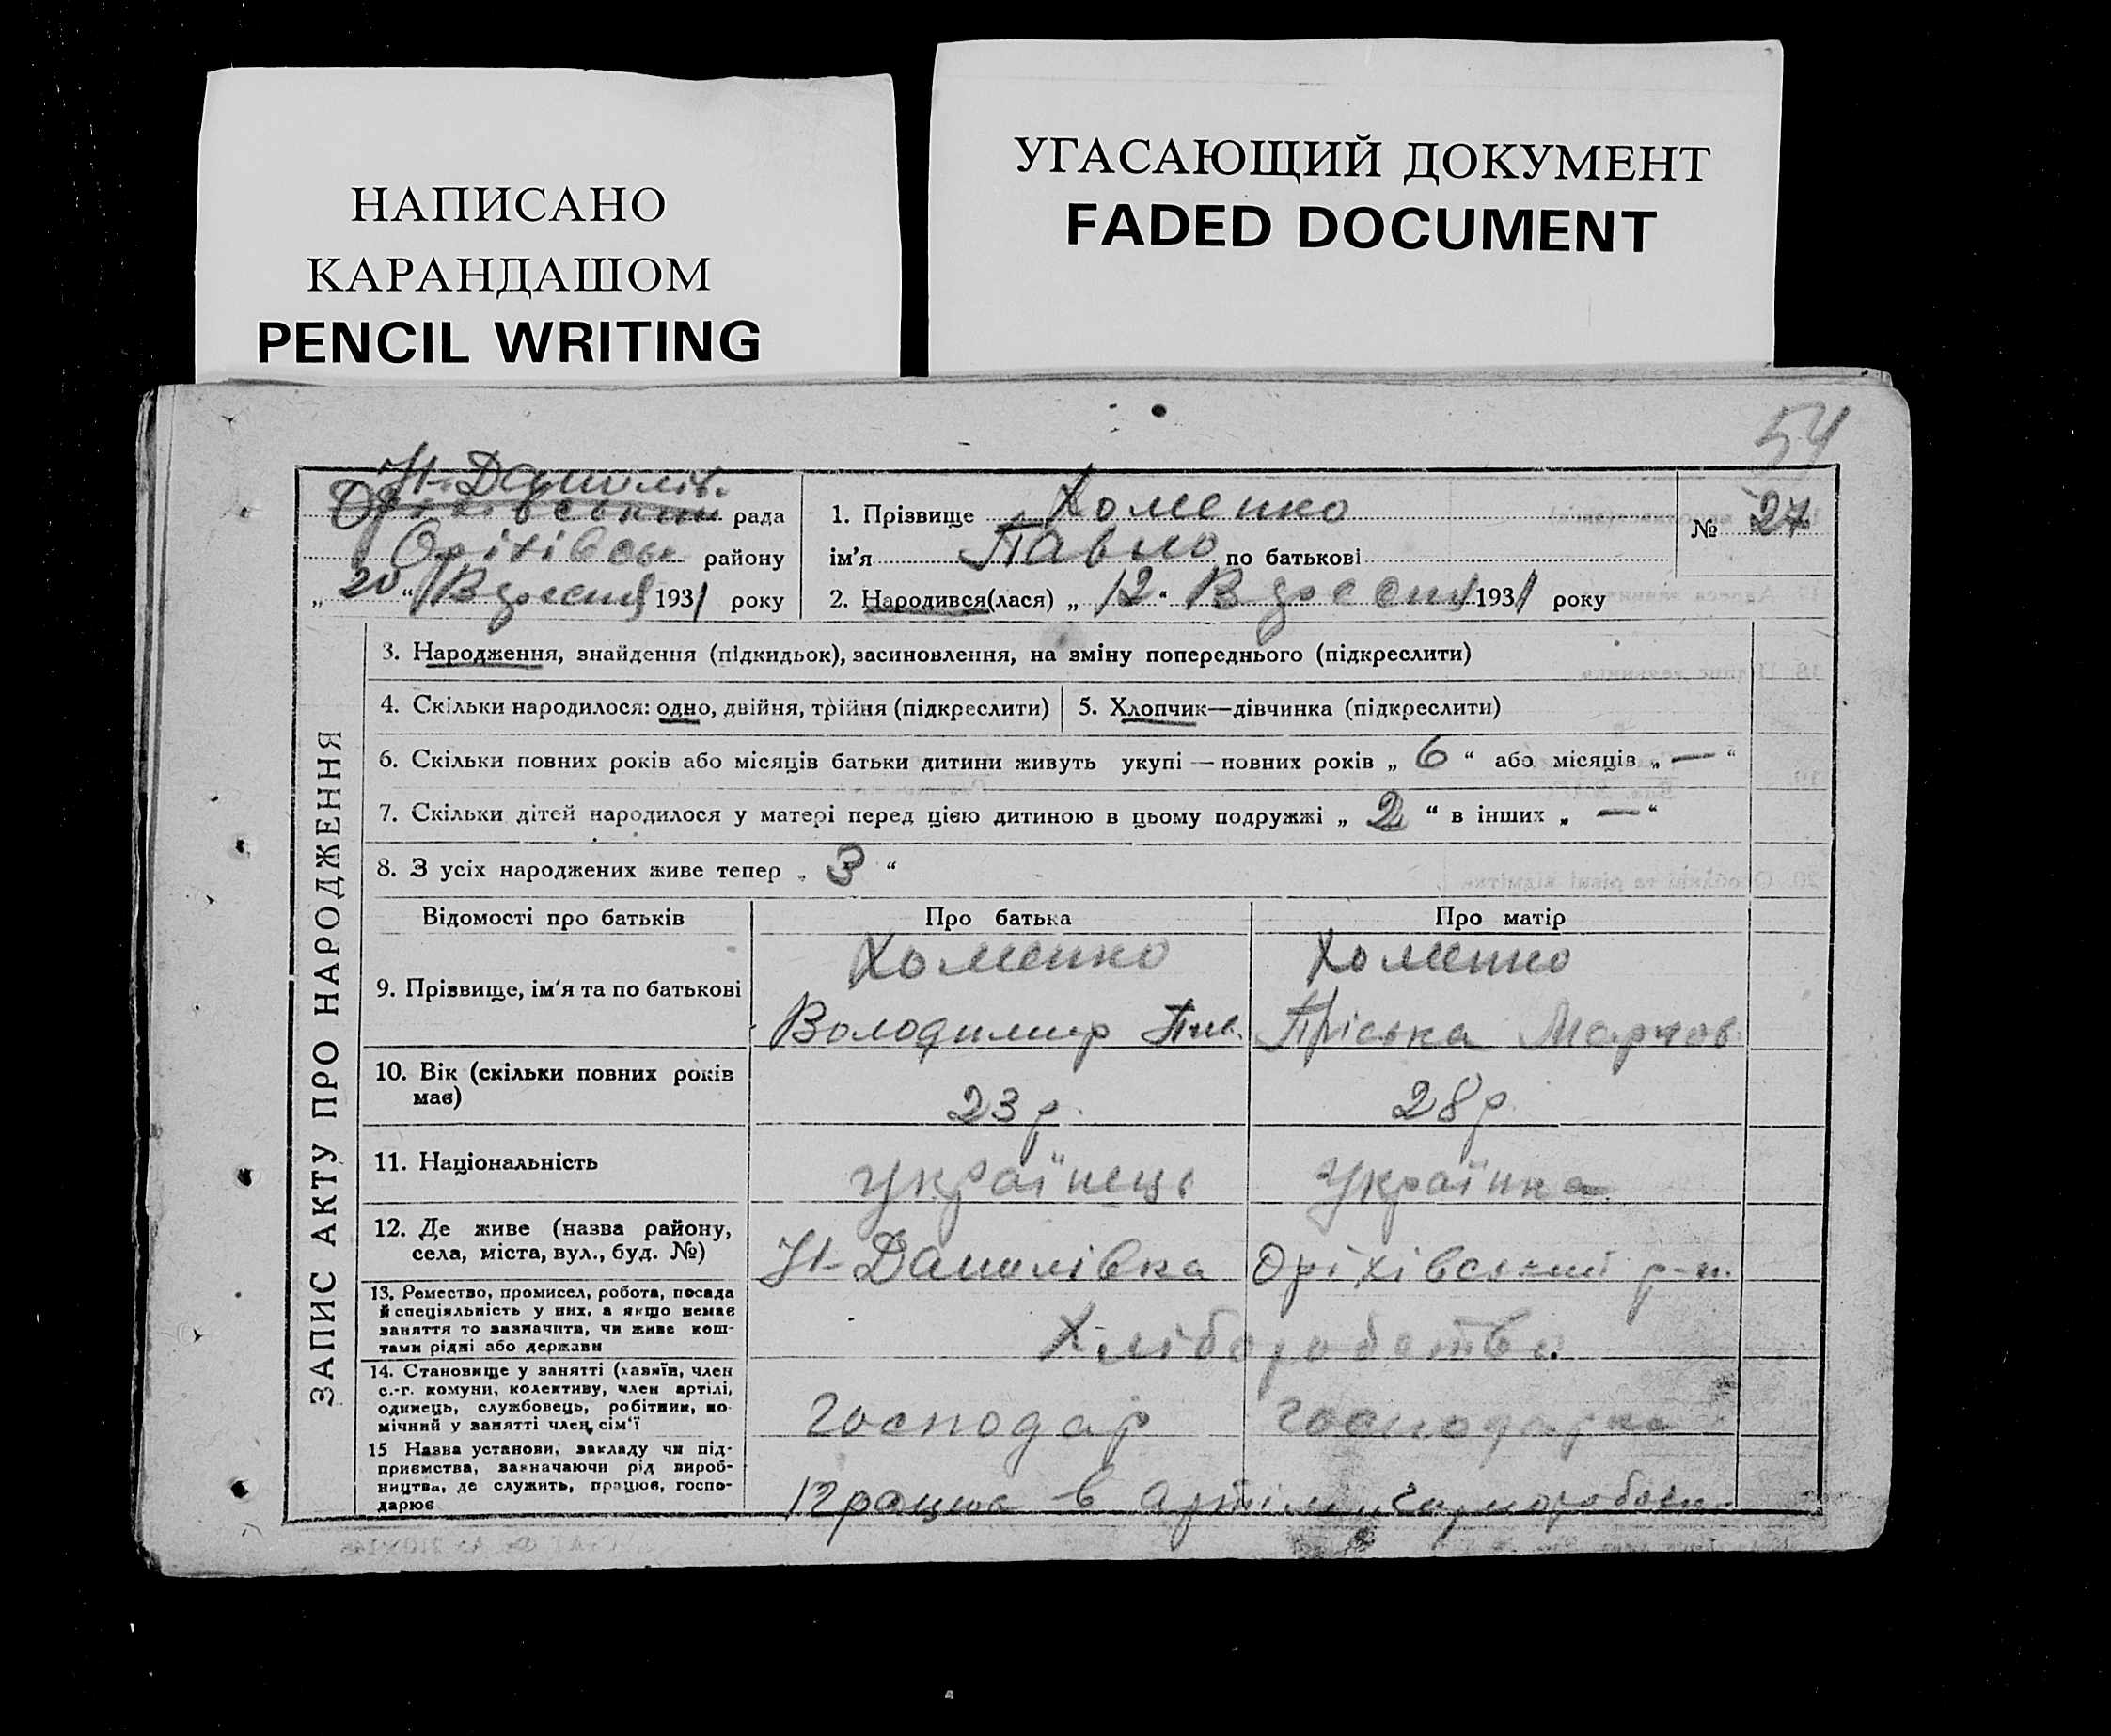 НАПИСАНО
КАРАНДАШОМ
PENCIL WRITING
УГАСАЮЩИЙ ДОКУМЕНТ
FADED DOCUMENT
54
Н-Данилів.
Оріхівський рада
Оріхівськ району
„ 20 “ Вресня 1931 року
1. Прізвище Хоменко
ім’я Павло по батькові
2. Народився(лася) „ 12 “ Вресня 1931 року
№ 27
ЗАПИС АКТУ ПРО НАРОДЖЕННЯ
3. Народження, знайдення (підкидьок), засиновлення, на зміну попереднього (підкреслити)
4. Скільки народилося: одно, двійня, трійня (підкреслити)
5. Хлопчик—дівчинка (підкреслити)
6. Скільки повних років або місяців батьки дитини живуть укупі — повних років „ 6 “ або місяців „ — “
7. Скільки дітей народилося у матері перед цією дитиною в цьому подружжі „ 2 “ в інших „ — “
8. З усіх народжених живе тепер „ 3 “
Відомості про батьків Про батька Про матір
9. Прізвище, ім’я та по батькові
Хоменко Хоменко
Володимир Пріська
10. Вік (скільки повних років
має)
23 р. 28 р.
11. Національність
Українець Українка
12. Де живе (назва району,
села, міста, вул., буд. №)
Н-Данилівка Оріхівський р-н.
13. Ремество, промисел, робота, посада
й спеціяльність у них, а якщо немає
заняття то зазначити, чи живе кош-
тами рідні або держави
Хліборобство
14. Становище у занятті (хазяїн, член
с.-г. комуни, колективу, член артілі,
одинець, службовець, робітник, по-
мічний у занятті член сім’ї
Господар Господарка
15 Назва установи, закладу чи під-
приємства, зазначаючи рід вироб-
ництва, де служить, працює, госпо-
дарює
Працює в артілі